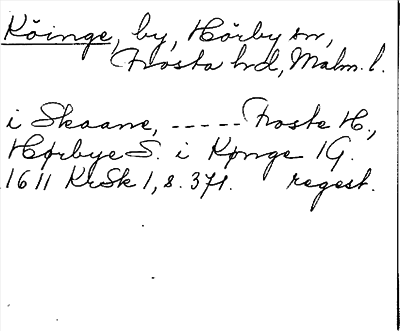 Köinge, by, Hörby sn,
Frosta hd, Malm. l.
i Skaane, ----- Froste H.,
Hørbye S. i Kønge 1G.
1611 KrSk 1, s. 371. regest.